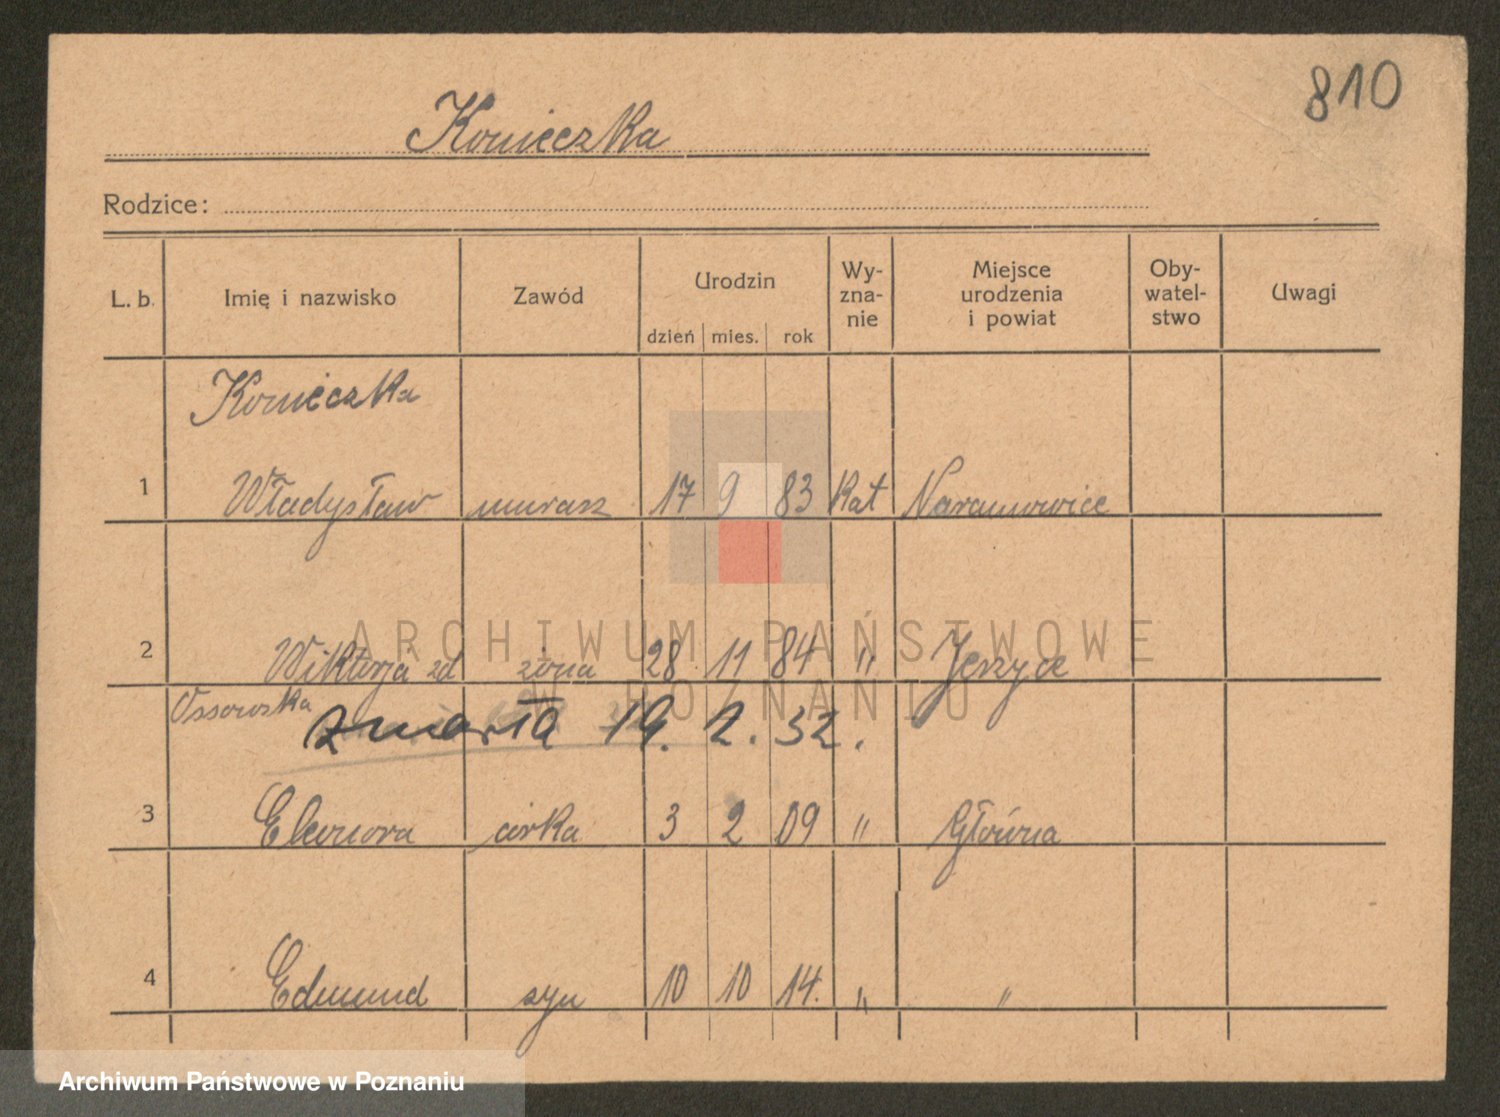 810
Konieczka
Rodzice:
L. b. Imię i nazwisko Zawód Urodzin dzień mies. rok Wy-zna-nie Miejsce urodzenia i powiat Oby-watel-stwo Uwagi
Konieczka
1 Władysław murarz 17 9 83 Kat Naramowice
2 Wiktorja zd żona 28 11 84 " Jerzyce
Ossowska
zmarła 19. 2. 32.
3 Eleonora córka 3 2 09 " Główna
4 Edmund syn 10 10 14. " "
ARCHIWUM PAŃSTWOWE
W POZNANIU
Archiwum Państwowe w Poznaniu